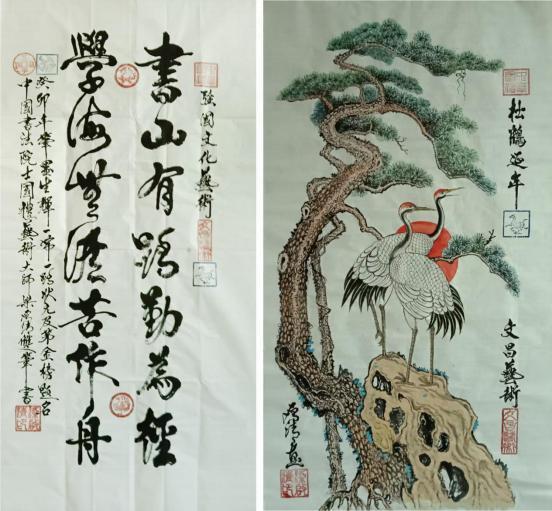 國文化藝術
書山有路勤為徑
學海無涯苦作舟
癸卯年筆墨生輝一帶一路狀元及第金榜題名
中國書法院士國禮藝術大師梁
書
松鶴延年
文昌藝術